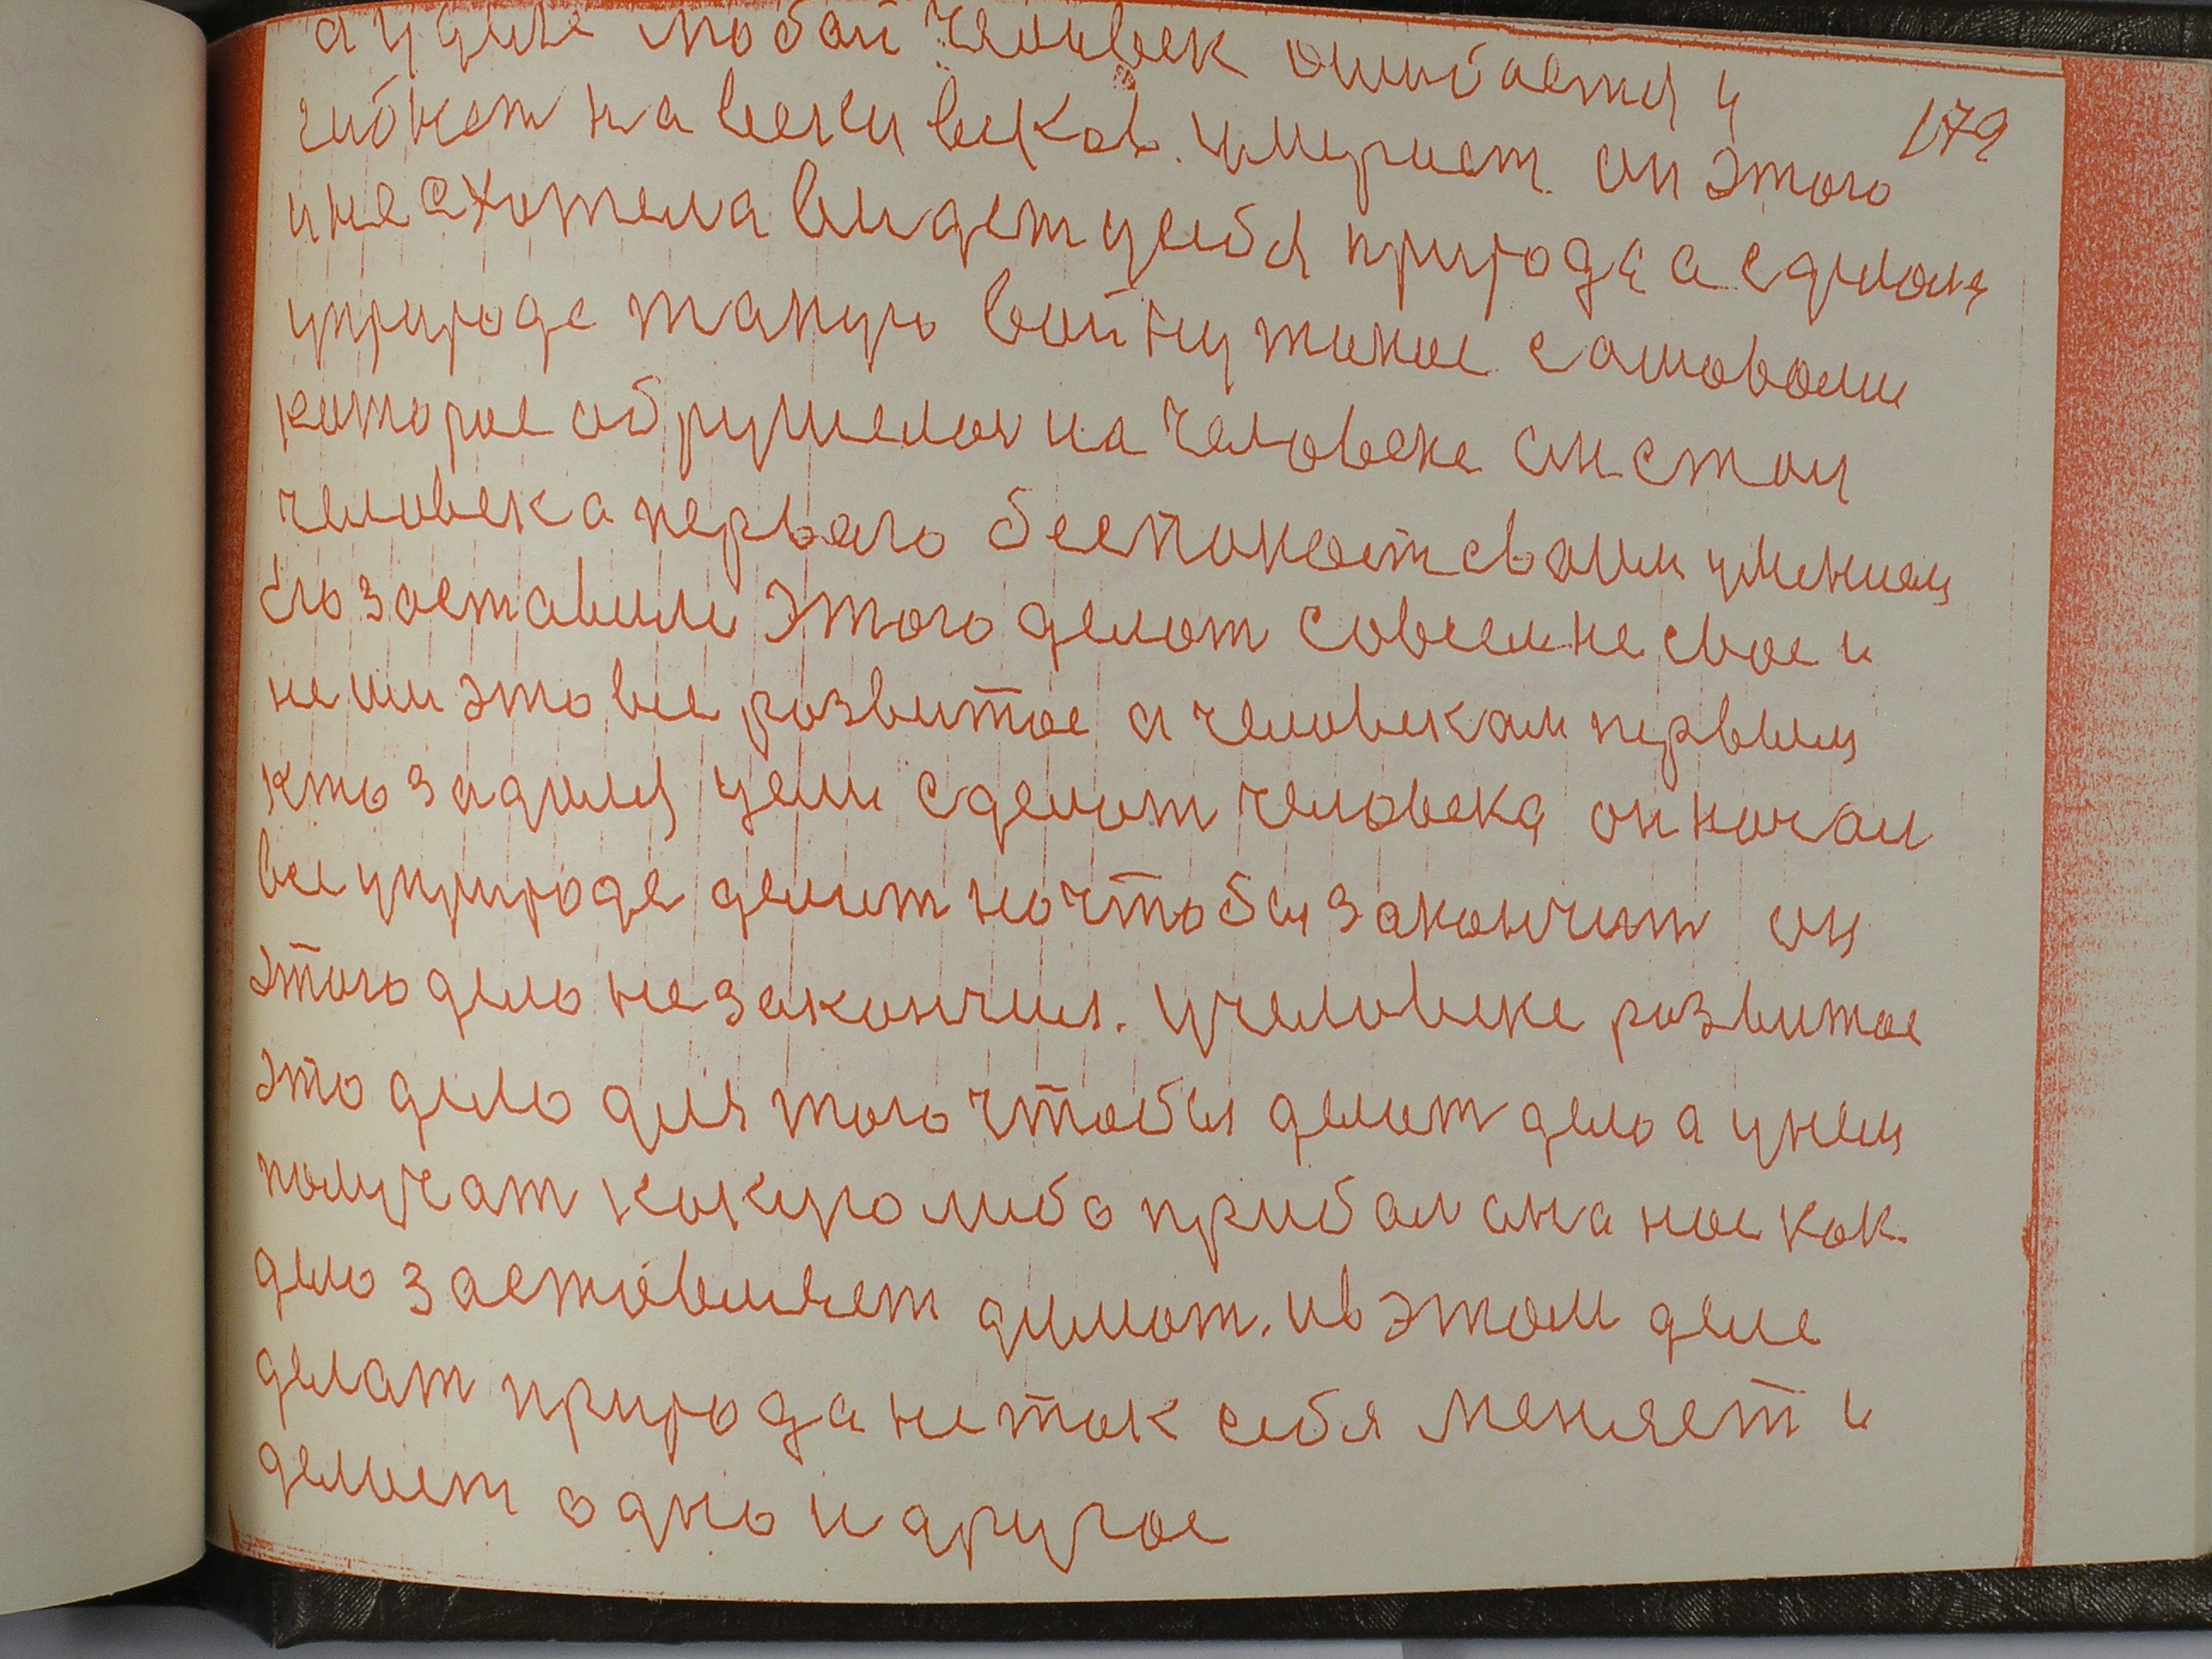 а у деле любой человек ошибается и
179
гибнет на веки веков. умирает он этого
и не схотела видет у себя природа а сделали
у природе такую войну тикое самоволи
которое обрушелос на человеке он стал
человека первого беспокоет своим умением
его заставили этого делат совсем не свое и
не ими это все развитое а человеком первым
кто задался цели сделат человека он начал
все у природе делат но чтобы закончит он
этого дело не закончил. у человеке развитое
это дело для того чтобы делат дело а у нем
получат какую либо прибал она нас как
дело заставляет делат. и в этом деле
делат природа не так себя меняет и
делает одно и другое